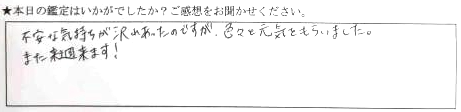 ★本日の鑑定はいかがでしたか？ご感想をお聞かせください。
不安な気持ちが沢山あったのですが、色々と元気をもらいました。
また来週来ます！